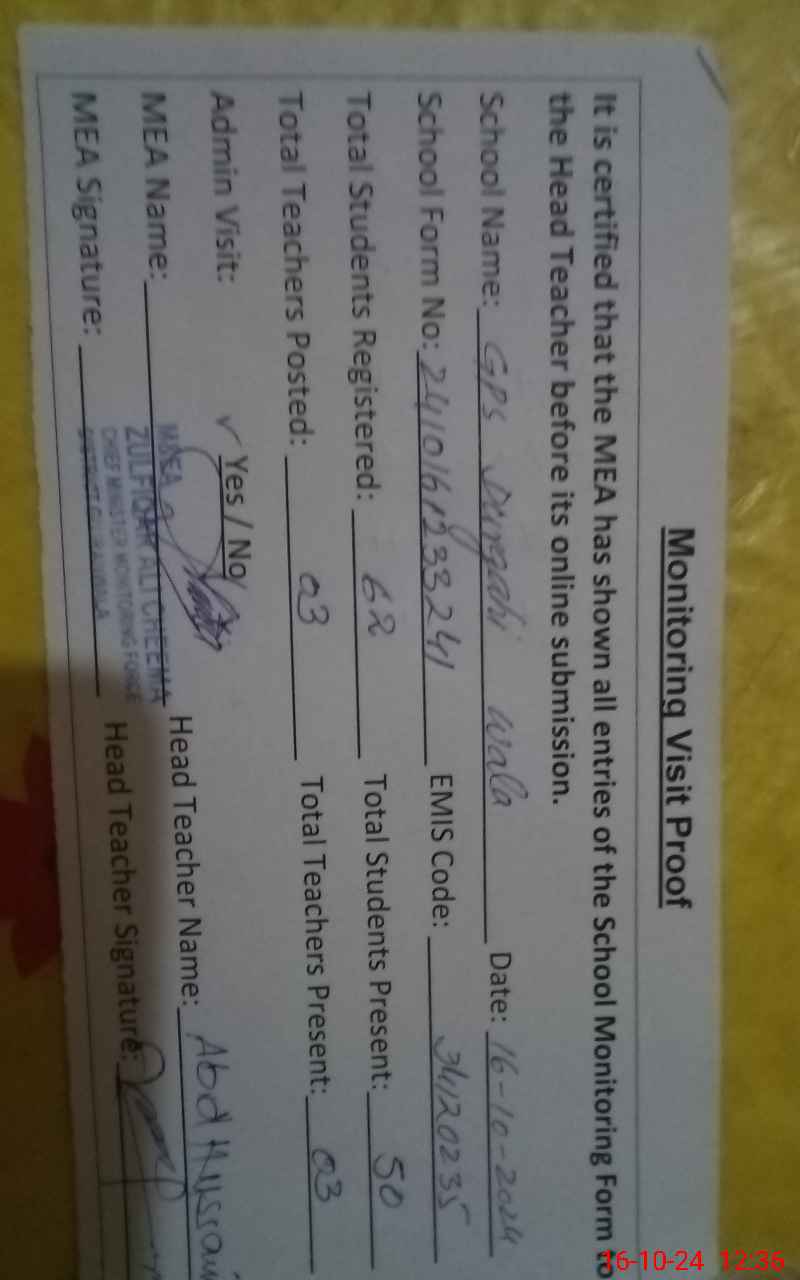 Monitoring Visit Proof
It is certified that the MEA has shown all entries of the School Monitoring Form to
the Head Teacher before its online submission.
School Name: GPS Durgahi wala Date: 16-10-2024
School Form No: 241016123324 EMIS Code: 34120235
Total Students Registered: 62 Total Students Present: 50
Total Teachers Posted: 03 Total Teachers Present: 03
Admin Visit: ✓ Yes / No
MEA Name: ZULFIQAR ALI CHEEMA Head Teacher Name: Abd Hussai
CHIEF MINISTER MONITORING FORCE
MEA Signature: Head Teacher Signature:
16-10-24 12:36